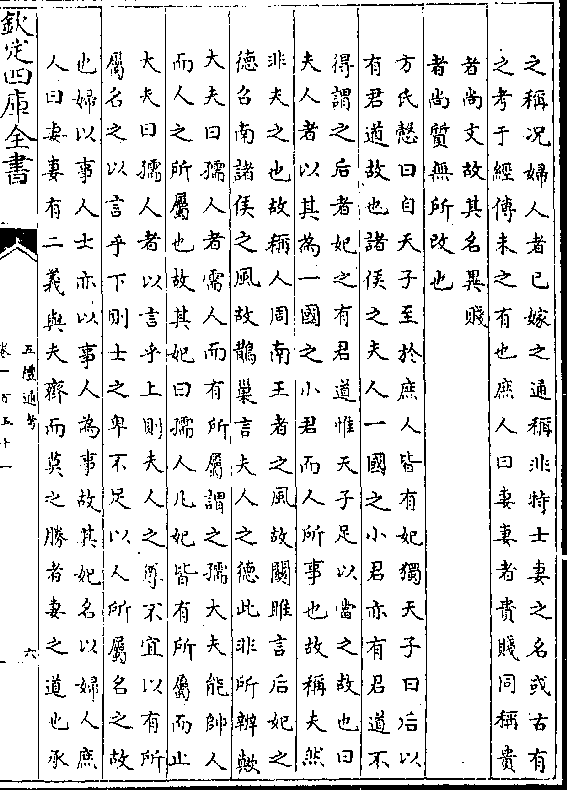 之稱况婦人者已嫁之通稱非特士妻之名或古有
之考于經傳未之有也庶人曰妻妻者貴賤同稱貴
者尚文故其名異賤
者尚質無所改也
方氏慤曰自天子至於庶人皆有妃獨天子曰后以
有君道故也諸侯之夫人一國之小君亦有君道不
得謂之后者妃之有君道惟天子足以當之故也曰
夫人者以其為一國之小君而人所事也故稱夫然
非夫之也故稱人周南王者之風故關雎言后妃之
德召南諸侯之風故鵲巢言夫人之德此非所辨歟
大夫曰孺人者需人而有所屬謂之孺大夫能帥人
而人之所屬也故其妃曰孺人凡妃皆有所屬而止
大夫曰孺人者以言乎上則夫人之尊不宜以有所
屬名之以言乎下則士之卑不足以人所屬名之故
也婦以事人士亦以事人為事故其妃名以婦人庶
人曰妻妻有二義與夫齊而莫之勝者妻之道也承
欽定四庫全書
五禮通考
卷一百五十一
六